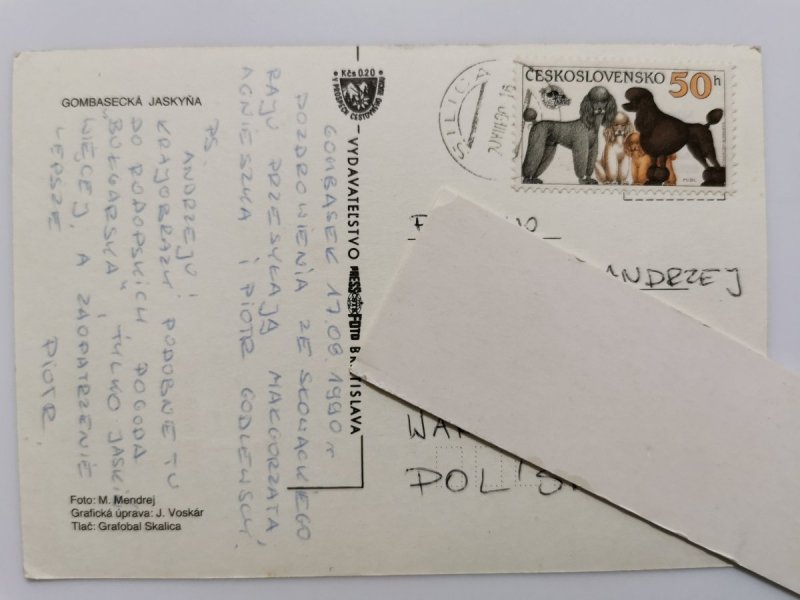 GOMBASECKÁ JASKYŇA
GOMBASEK 17 08 1990 r
POZDROWIENIA ZE SŁOWACKIEGO
RAJU PRZESYŁAJĄ MAŁGORZATA,
AGNIESZKA I PIOTR GODLEWSCY.
PS
ANDRZEJU! PODOBNE TU
KRAJOBRAZY
DO RODOPSKICH POGODA
"BUŁGARSKA", TYLKO JASKIŃ
WIĘCEJ, A ZAOPATRZENIE
LEPSZE
PIOTR.
Foto: M. Mendrej
Grafická úprava: J. Voskár
Tlač: Grafobal Skalica
Kčs 0,20
VYDAVATEĽSTVO PRESSFOTO BRATISLAVA
SILICA
ČESKOSLOVENSKO 50h
ANDRZEJ